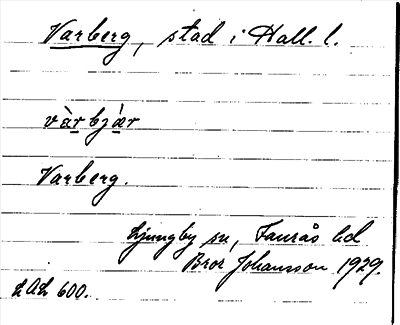 Varberg, stad i Hall. l.
vàrbjár
Varberg.
Ljungby sn, Faurås hd
Bror Johansson 1929.
LAL 600.